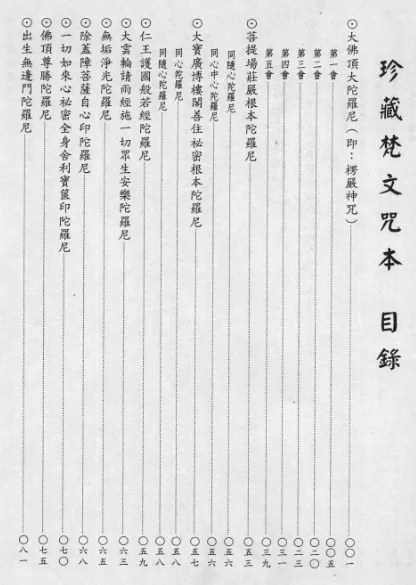 珍藏梵文咒本 目錄
⊙大佛頂大陀羅尼（即：楞嚴神咒）……〇〇一
第一會……〇〇五
第二會……〇二〇
第三會……〇二三
第四會……〇三一
第五會……〇三九
⊙菩提場莊嚴根本陀羅尼……〇五三
同隨心陀羅尼……〇五六
同心中心陀羅尼……〇五六
⊙大寶廣博樓閣善住祕密根本陀羅尼……〇五七
同心陀羅尼……〇五八
同隨心陀羅尼……〇五八
⊙仁王護國般若經陀羅尼……〇五九
⊙大雲輪請雨經施一切眾生安樂陀羅尼……〇六三
⊙無垢淨光陀羅尼……〇六五
⊙除蓋障菩薩自心印陀羅尼……〇六八
⊙一切如來心祕密全身舍利寶篋印陀羅尼……〇七〇
⊙佛頂尊勝陀羅尼……〇七五
⊙出生無邊門陀羅尼……〇八一